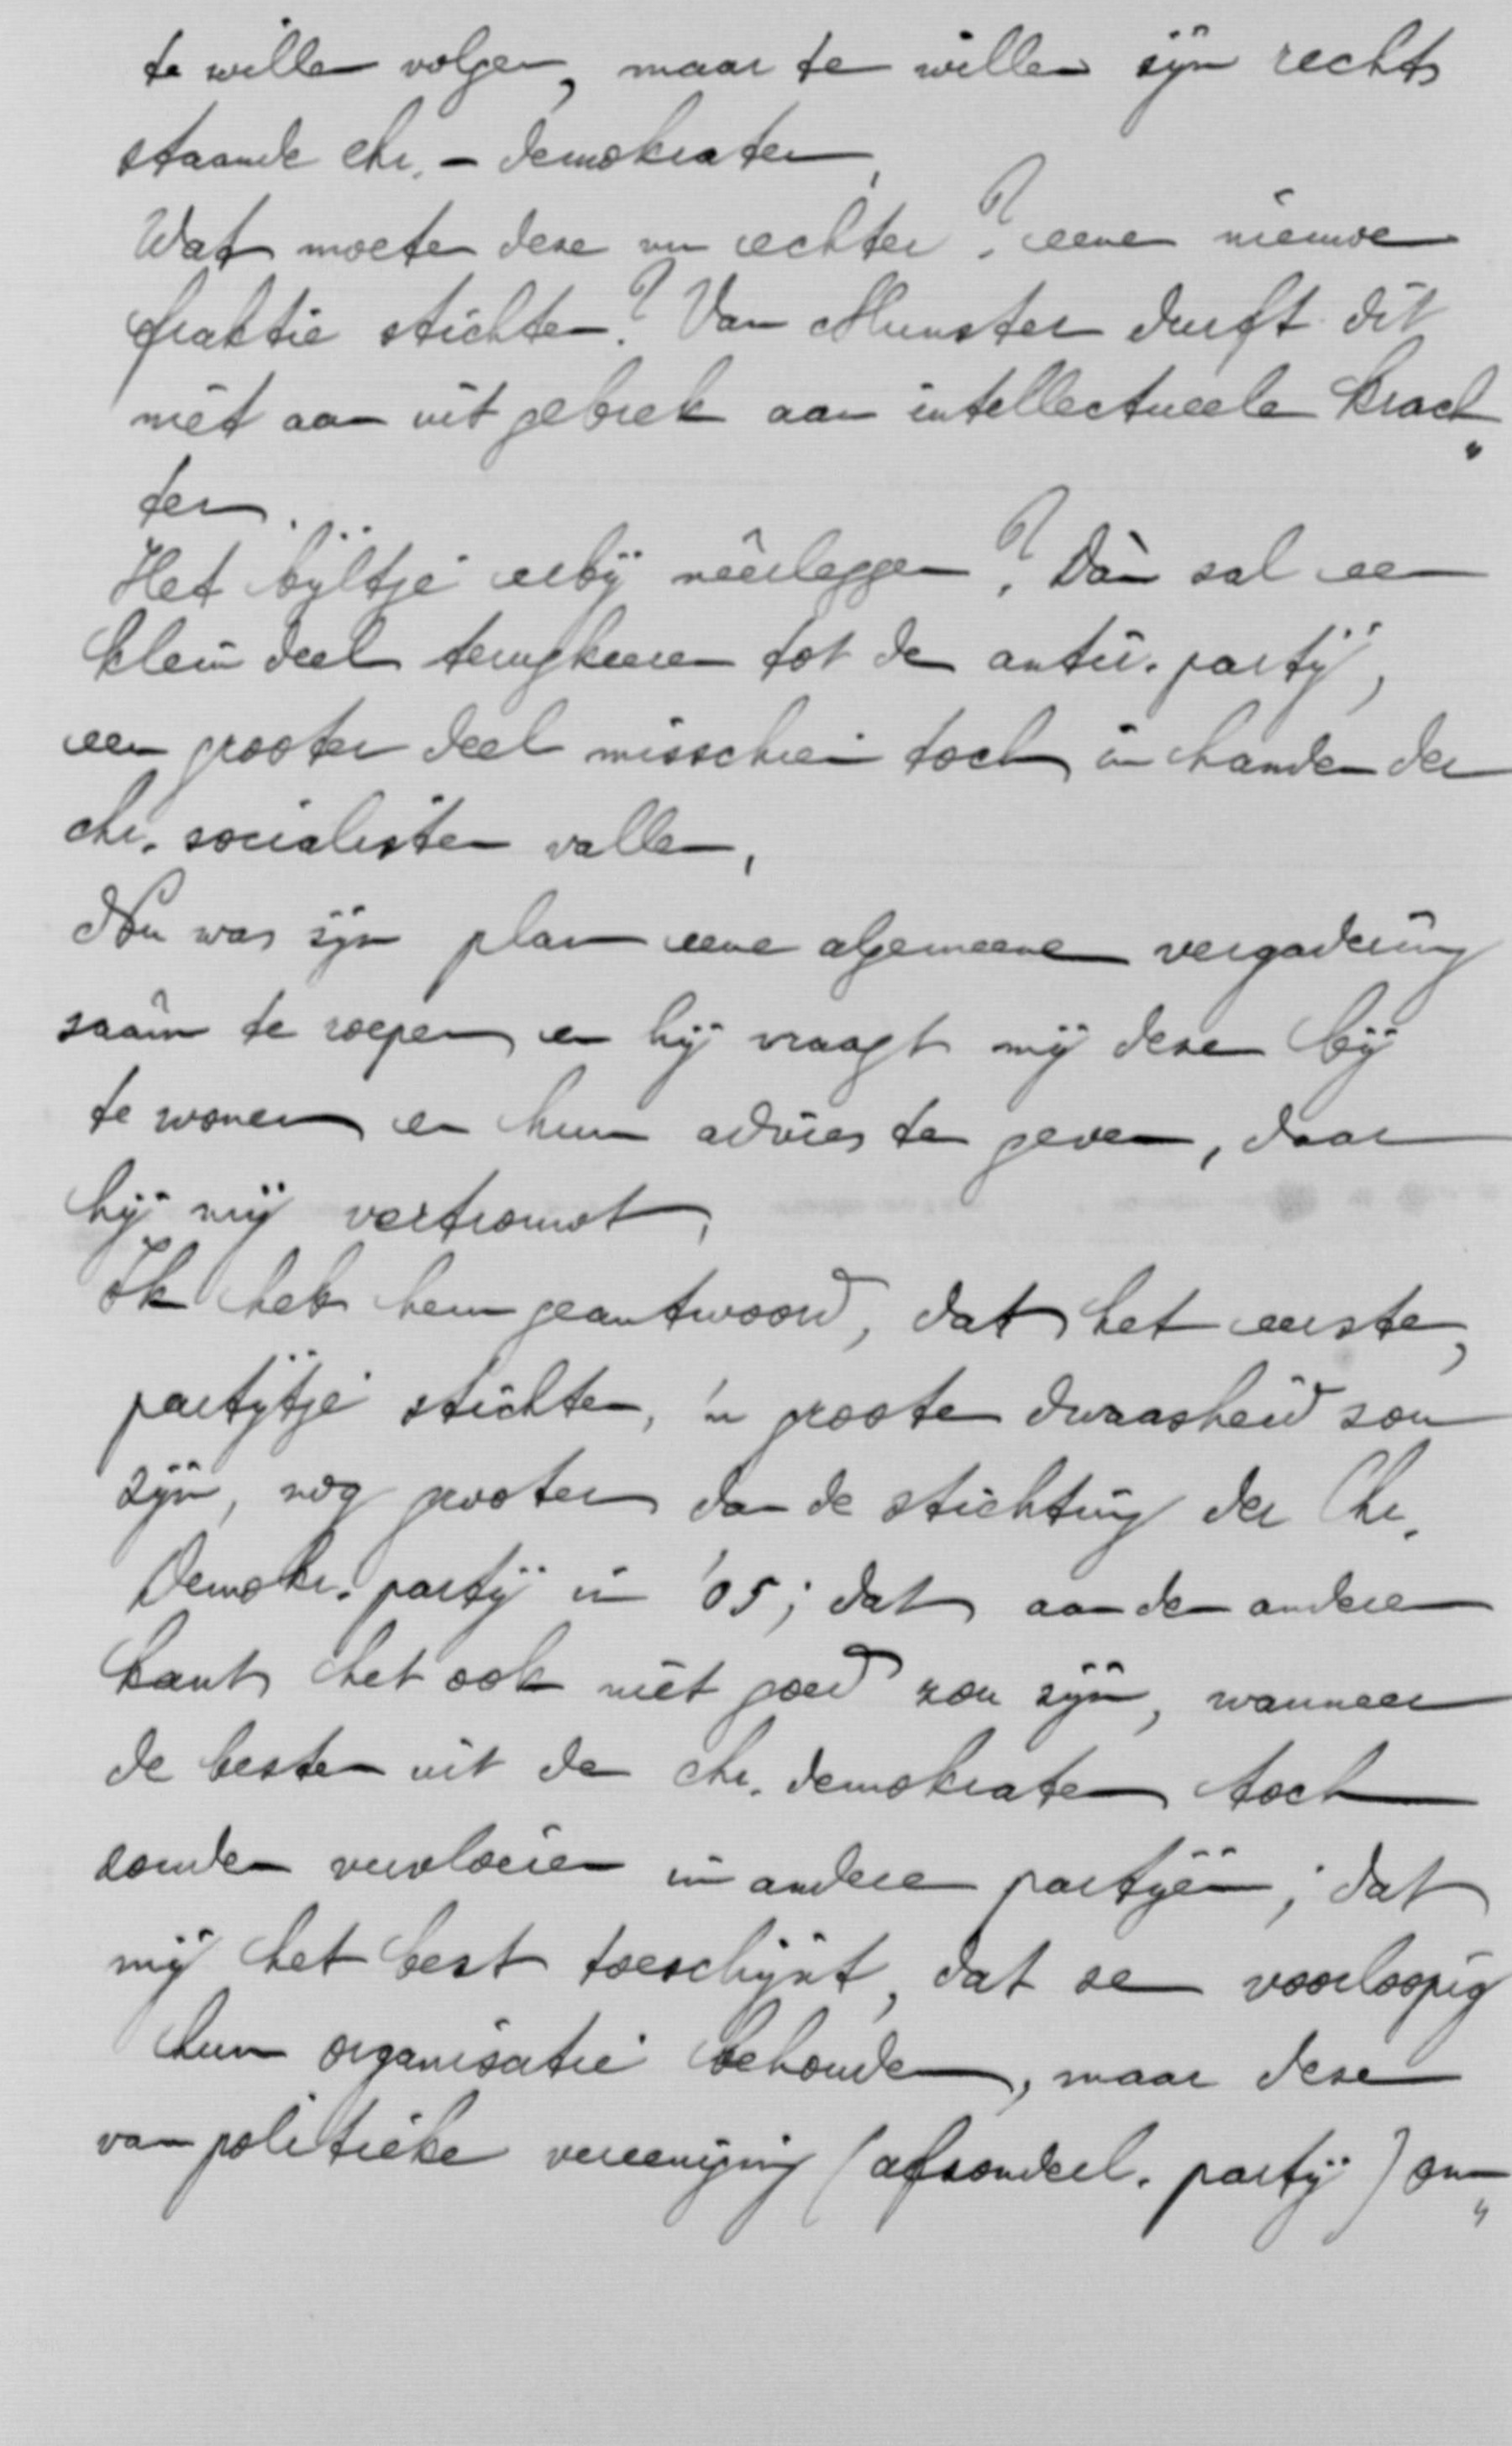 te willen volgen, maar te willen zijn rechts
staande chr. - demokraten.
Wat moeten deze nu echter? eene nieuwe
fraktie stichten? Van Munster durft dit
niet aan uit gebrek aan intellectueele krach„
ten.
Het bijltje erbij neêrleggen? Dàn zal een
klein deel terugkeeren tot de antir. partij,
een grooter deel misschien toch in handen der
chr. socialisten vallen.
Nu was zijn plan eene algemeene vergadering
saâm te roepen en hij vraagt mij deze bij
te wonen en hun advies te geven, daar
hij mij vertrouwt.
Ik heb hem geantwoord, dat het eerste,
partijtje stichten, 'n groote dwaasheid zou
zijn, nog grooter dan de stichting der Chr.
Demokr. partij in '05; dat aan den anderen
kant het ook niet goed zou zijn, wanneer
de besten uit de chr. demokraten toch
zouden vervloeien in andere partijen; dat
mij het best toeschijnt, dat ze voorloopig
hun organisatie behouden, maar deze
van politieke vereeniging (afzonderl. partij) om„